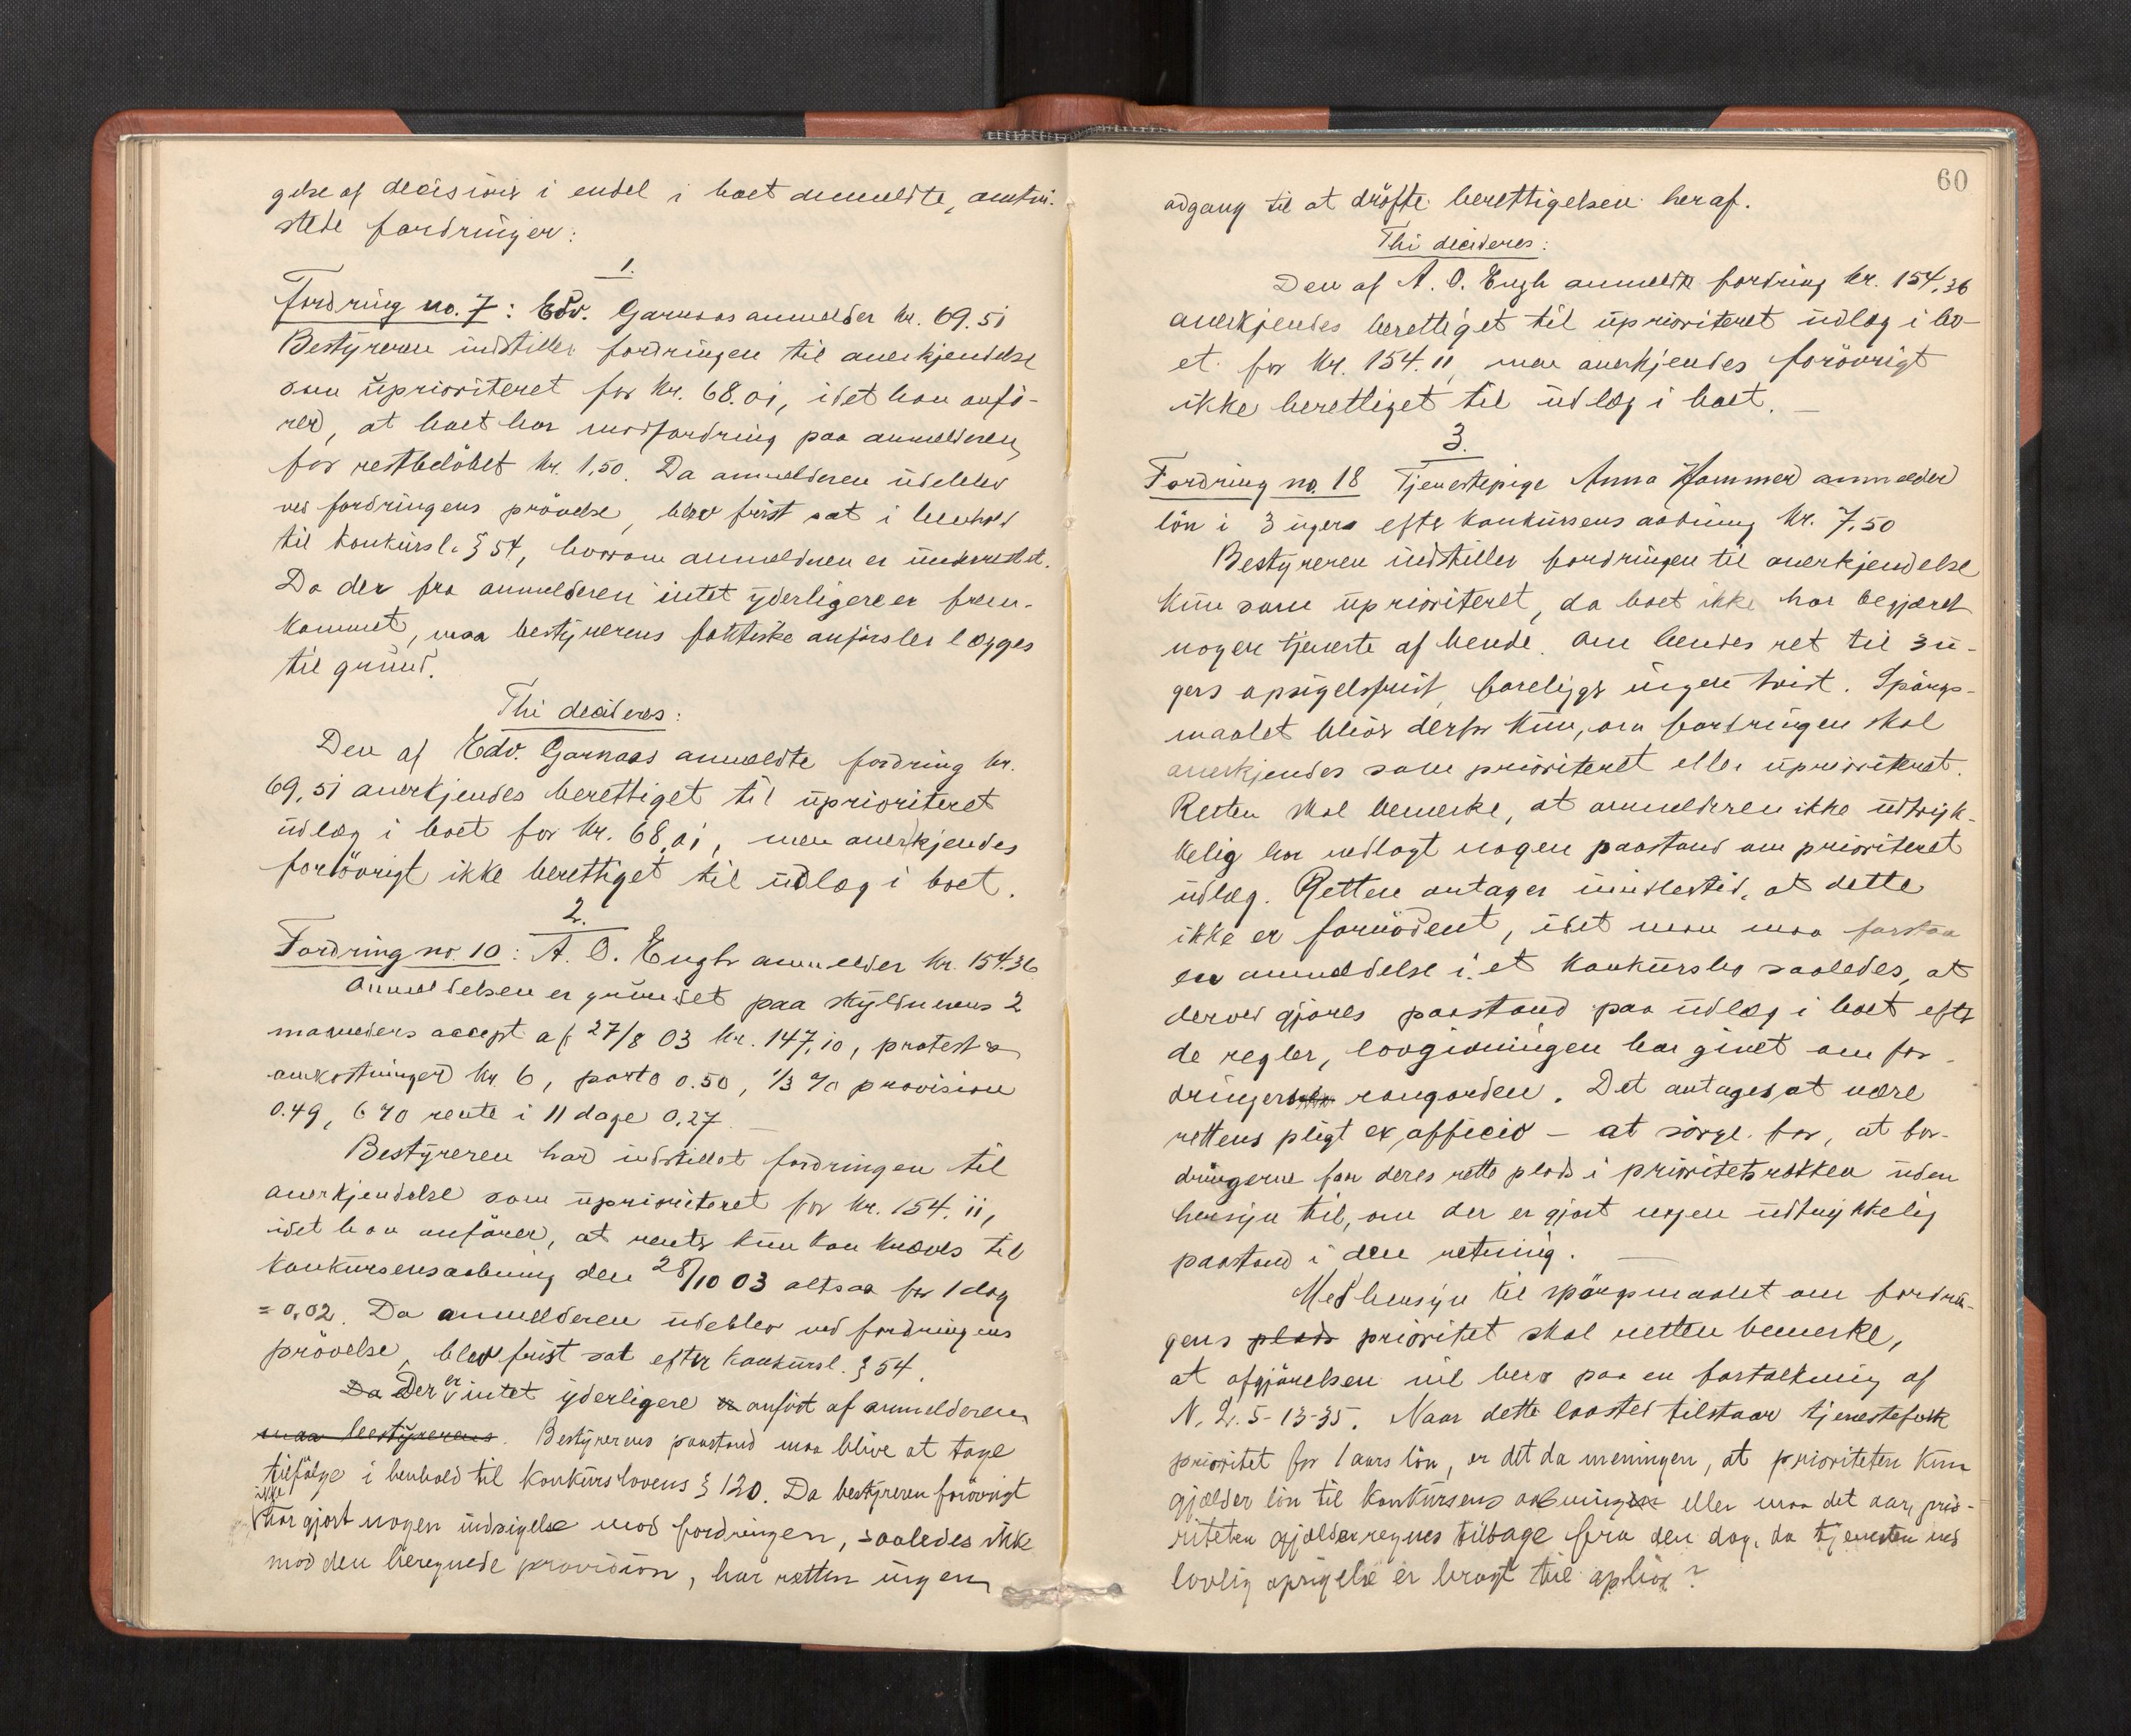 gelse af decision i endel i boet anmeldte, omtvi-
stede fordringer:
1.
Fordring no. 7: Edv. Garnaas anmelder kr. 69.51
Bestyreren indstiller fordringen til anerkjendelse
som uprioriteret for kr. 68.01, idet han anfö-
rer, at boet har modfordring paa anmelderen
for restbelöbet kr. 1,50. Da anmelderen udeblev
ved fordringens prövelse, blev frist sat i henhold
til konkursl. § 54, hvorom anmelderen er underrettet.
Da der fra anmelderen intet yderligere er frem-
kommet, maa bestyrerens faktiske anförsler lægges
til grund.
Thi decideres:
Den af Edv. Garnaas anmeldte fordring kr.
69,51 anerkjendes berettiget til uprioriteret
udlæg i boet for kr. 68,01, men anerkjendes
forövrigt ikke berettiget til udlæg i boet.
2.
Fordring no. 10: A. O. Engh anmelder kr. 154.36
Anmeldelsen er grundet paa skyldnerens 2
maaneders accept af 27/8 03 kr. 147,10, protest
omkostninger kr. 6, porto 0.50, 1/3 % provision
0.49, 6 % rente i 11 dage 0,27. —
Bestyreren har indstillet fordringen til
anerkjendelse som uprioriteret for kr. 154.11,
idet han anförer, at rente kun kan kræves til
konkursens aabning den 28/10 03 altsaa for 1 dag
= 0,02. Da anmelderen udeblev ved fordringens
prövelse, blev frist sat efter konkursl. § 54.
Da Der er intet yderligere er anfört af anmelderen
maa bestyrerens. Bestyrerens paastand maa blive at tage
tilfölge i henhold til konkurslovens § 120. Da bestyreren forövrigt
ikke har gjort nogen indsigelse mod fordringen, saaledes ikke
mod den beregnede provision, har retten ingen
60
adgang til at dröfte berettigelsen heraf.
Thi decideres:
Den af A. O. Engh anmeldte fordring kr. 154,36
anerkjendes berettiget til uprioriteret udlæg i bo-
et for kr. 154.11, men anerkjendes forövrigt
ikke berettiget til udlæg i boet. —
3.
Fordring no. 18 Tjenestepige Anna Hammer anmelder
lön i 3 uger efter konkursens aabning kr. 7,50
Bestyreren indstiller fordringen til anerkjendelse
kun som uprioriteret, da boet ikke har begjæret
nogen tjeneste af hende. Om hendes ret til 3 u-
gers opsigelsfrist foreligger ingen tvist. Spörgs-
maalet bliver derfor kun, om fordringen skal
anerkjendes som prioriteret eller uprioriteret.
Retten skal bemerke, at anmelderen ikke udtryk-
kelig har nedlagt nogen paastand om prioriteret
udlæg. Retten antager imidlertid, at dette
ikke er fornödent, idet man maa forstaa
en anmeldelse i et konkursbo saaledes, at
derved gjöres paastand paa udlæg i boet efter
de regler, lovgivningen har givet om for-
dringers rangorden. Det antages at være
rettens pligt ex officio — at sörge for, at for-
dringerne faar deres rette plads i prioritetsrækken uden
hensyn til, om der er gjort nogen udtrykkelig
paastand i den retning. —
Med hensyn til spörgsmaalet om fordrin-
gens plads prioritet skal retten bemerke,
at afgjörelsen vil bero paa en fortolkning af
N. L. 5-13-35. Naar dette lovsted tilstaar tjenestefolk
prioritet for 1 aars lön, er det da meningen, at prioriteten kun
gjælder lön til konkursens aabning eller maa det aar, prio-
riteten gjælder regnes tilbage fra den dag, da tjenesten ved
lovlig opsigelse er bragt til ophör?